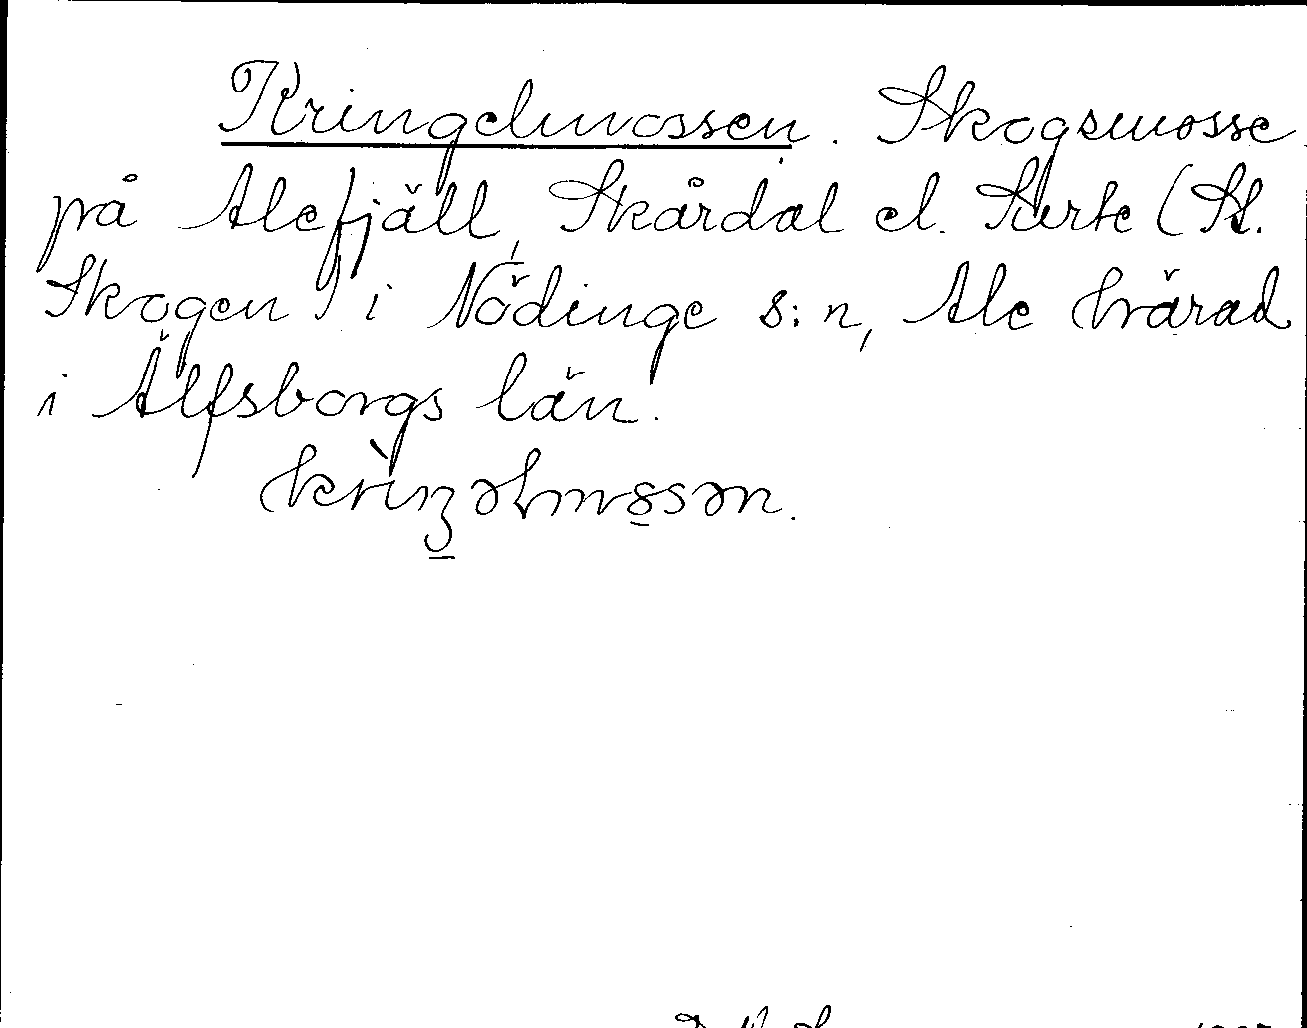 Kringelmossen. Skogsmosse
på Alefjäll, Skårdal el. Surte (St.
Skogen) i Nödinge s:n, Ale härad
i Älfsborgs län.
krìŋəlmosən.